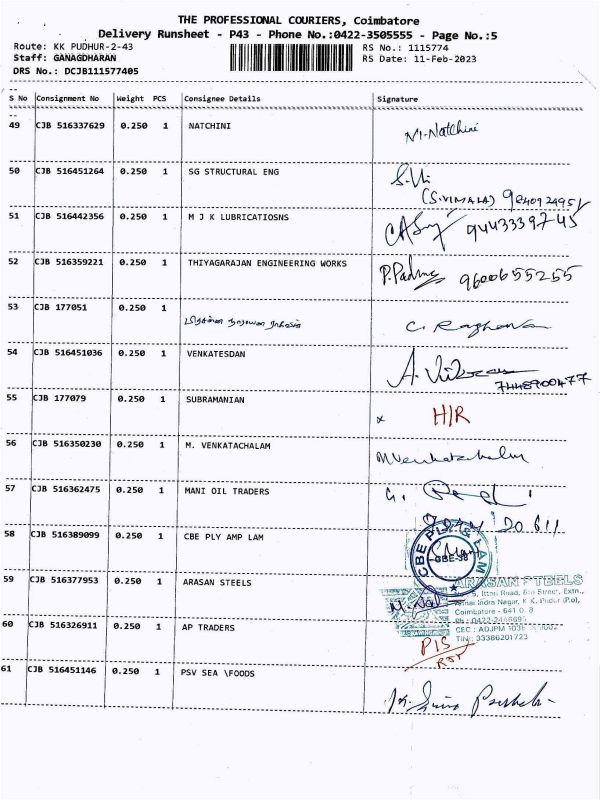 THE PROFESSIONAL COURIERS, Coimbatore
Delivery Runsheet - P43 - Phone No.:0422-3505555 - Page No.:5
Route: KK PUDHUR-2-43 RS No.: 1115774
Staff: GANAGDHARAN RS Date: 11-Feb-2023
DRS No.: DCJB111577405
S No Consignment No Weight PCS Consignee Details Signature
49 CJB 516337629 0.250 1 NATCHINI
50 CJB 516451264 0.250 1 SG STRUCTURAL ENG
(S.VIMALA)
51 CJB 516442356 0.250 1 M J K LUBRICATIOSNS
9443339745
52 CJB 516359221 0.250 1 THIYAGARAJAN ENGINEERING WORKS P.Padma 9600655255
53 CJB 177051 0.250 1 C. Raghavan
54 CJB 516451036 0.250 1 VENKATESDAN
7448900477
55 CJB 177079 0.250 1 SUBRAMANIAN x H/R
56 CJB 516350230 0.250 1 M. VENKATACHALAM M Venkatachalam
57 CJB 516362475 0.250 1 MANI OIL TRADERS
58 CJB 516389099 0.250 1 CBE PLY AMP LAM
CBE PLY & LAM
59 CJB 516377953 0.250 1 ARASAN STEELS ARASAN STEELS
Coimbatore - 641 0
60 CJB 516326911 0.250 1 AP TRADERS
TIN: 33386201723
P/S
61 CJB 516451146 0.250 1 PSV SEA \FOODS